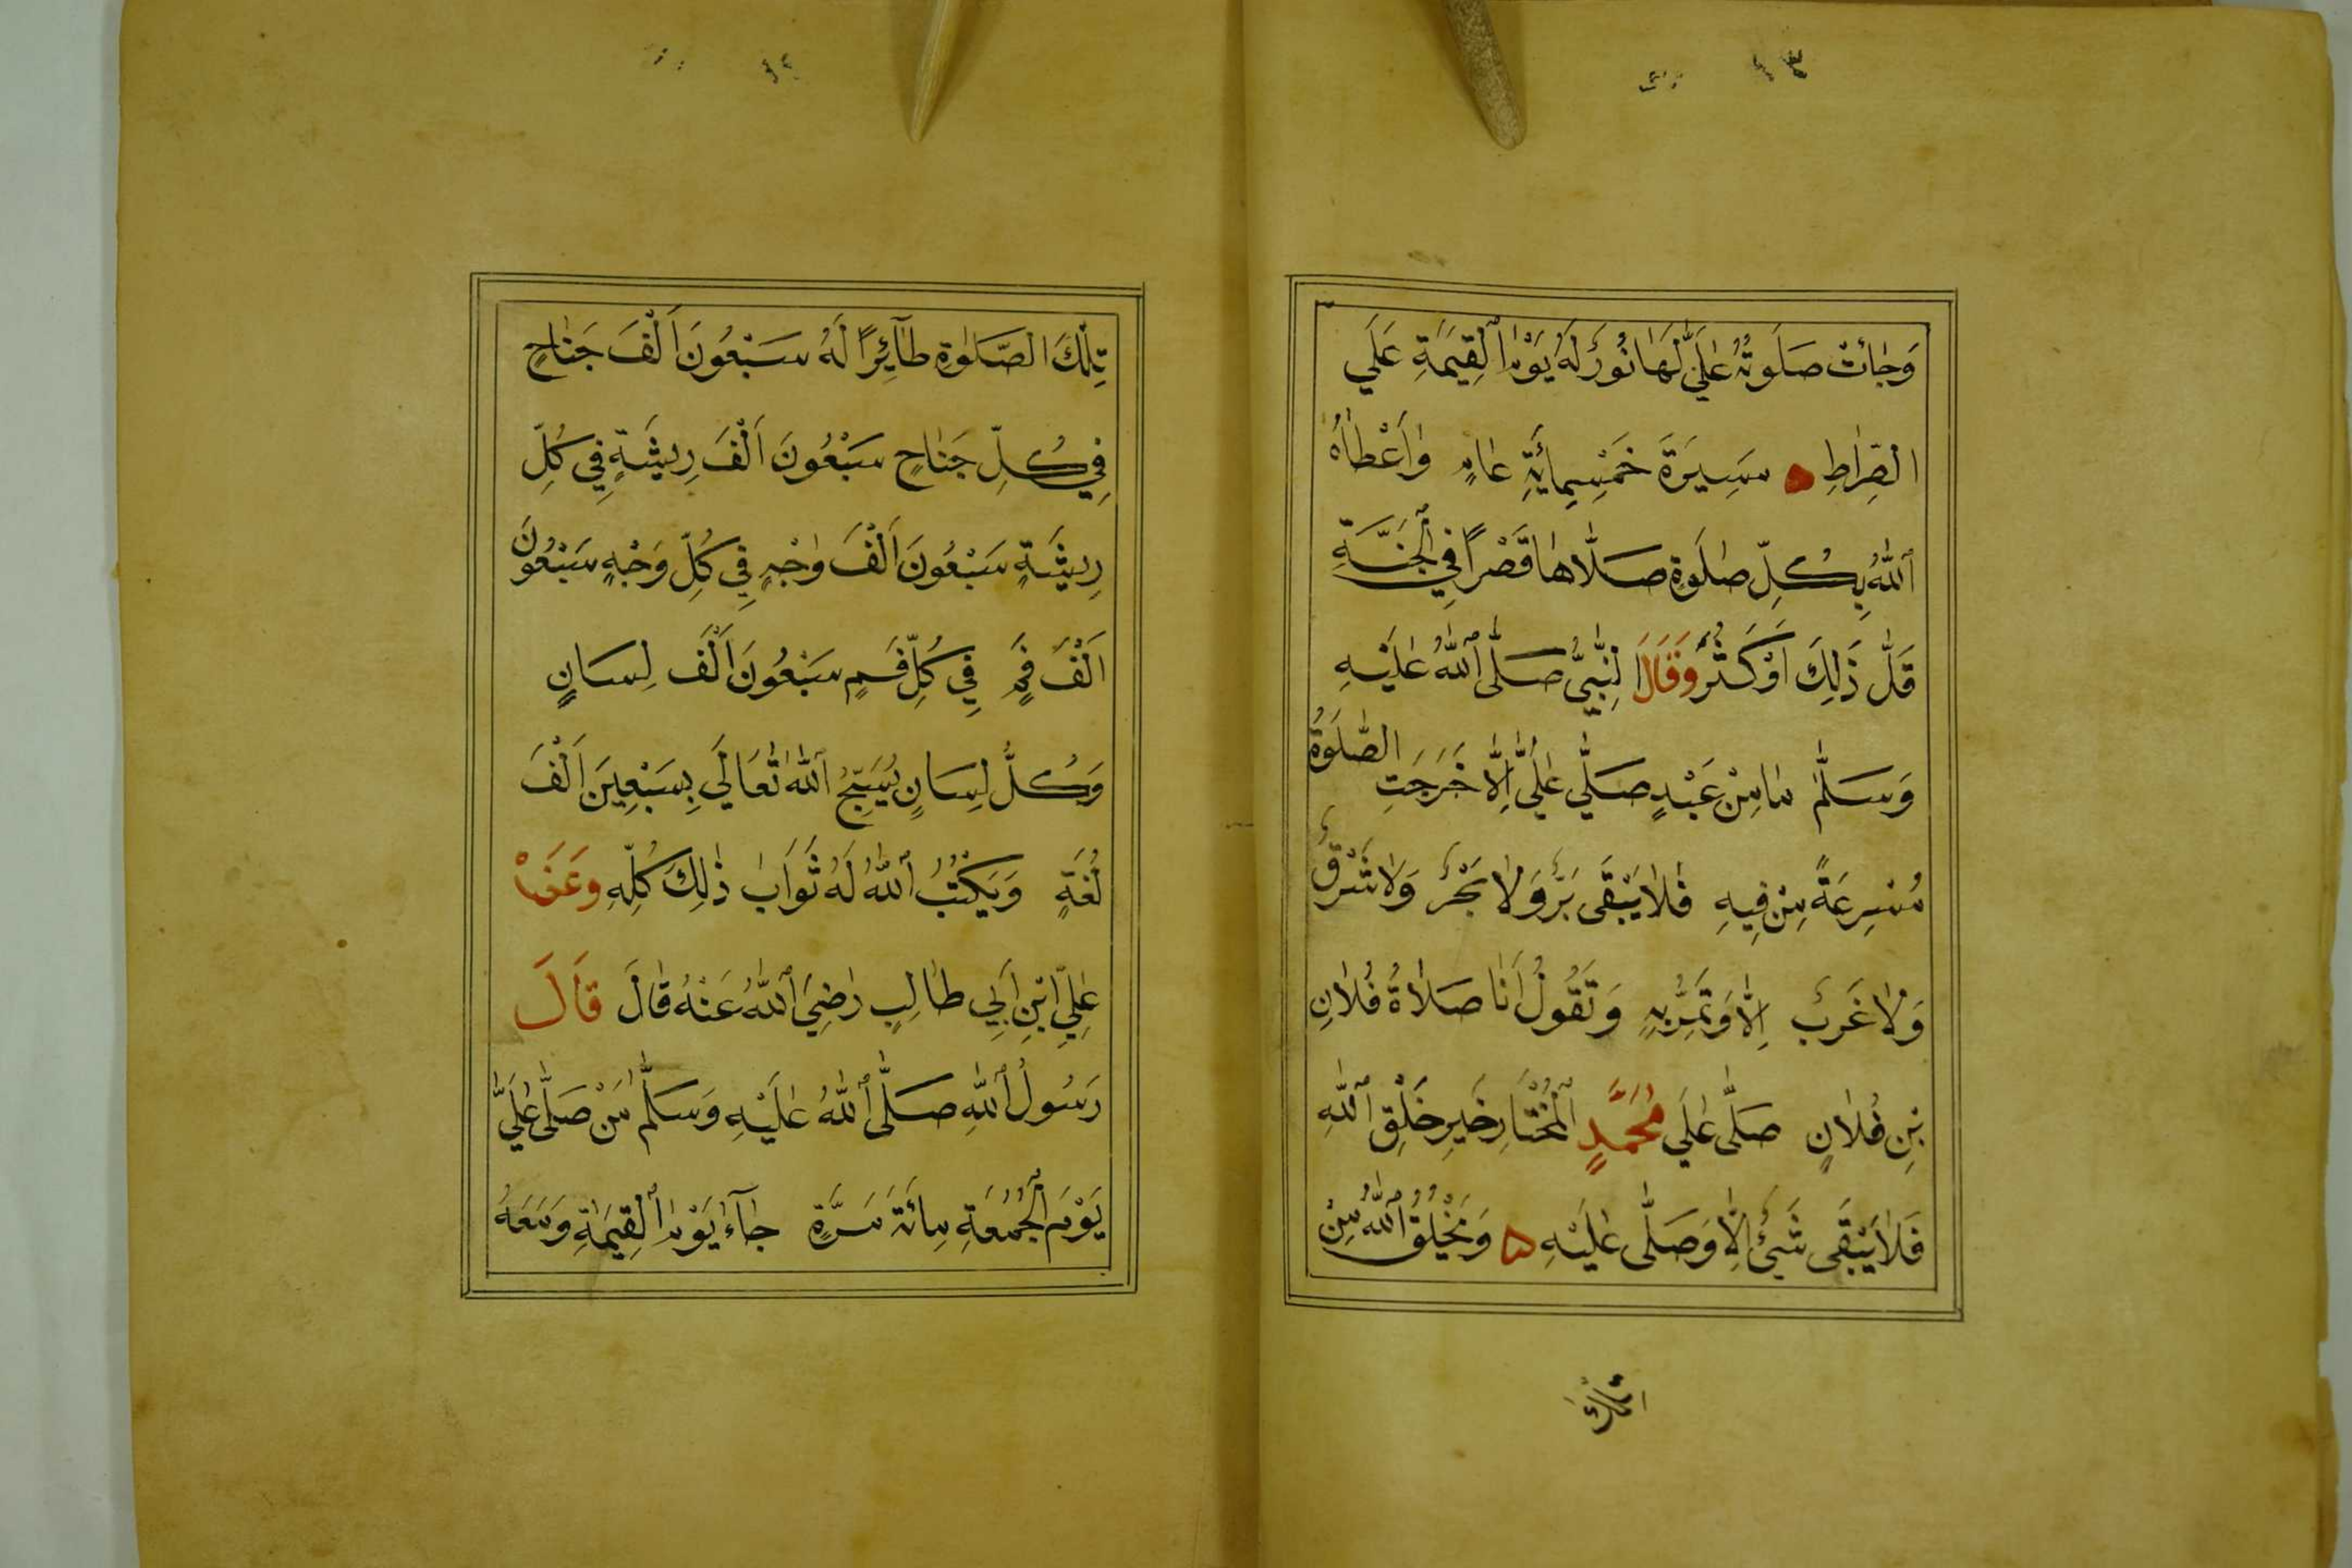 ١٣
وَجٰاتْ صَلَوتُهُ عَلَيَّ لَهَا نُورٌ لَهُ يَوْمَ ٱلْقِيٰمَةِ عَلَي
الصِّرٰاطِ مَسِيرَةَ خَمْسِمِائَةِ عٰامٍ وَاَعْطٰاهُ
ٱللّٰهُ بِكُلِّ صَلٰوةٍ صَلَّاهٰا قَصْرًا فِي ٱلْجَنَّةِ
قَلَّ ذَلِكَ اَوْ كَثُرَ وَقَالَ النَّبِيُّ صَلَّى ٱللّٰهُ عَلَيْهِ
وَسَلَّمَ مٰا مِنْ عَبْدٍ صَلَّي عَلَيَّ اِلَّا خَرَجَتِ الصَّلَوةُ
مُسْرِعَةً مِنْ فِيهِ فَلٰا يَبْقَى بَرٌّ وَلٰا بَحْرٌ وَلٰا شَرْقٌ
وَلٰا غَرْبٌ اِلّٰا وَتَمُرُّ بِهِ وَتَقُولُ اَنَا صَلٰاةُ فُلٰانِ
بْنِ فُلٰانٍ صَلَّى عَلَي مُحَمَّدٍ ٱلْمُخْتَارِ خَيْرِ خَلْقِ ٱللّٰهِ
فَلٰا يَبْقَى شَيْئٌ اِلّٰا وَصَلَّى عَلَيْهِ ۵ وَيَخْلُقُ ٱللّٰهُ مِنْ
تِلْكَ
تِلْكَ الصَّلٰوةِ طَآئِرًا لَهُ سَبْعُونَ اَلْفَ جَنٰاحٍ
فِي كُلِّ جَنٰاحٍ سَبْعُونَ اَلْفَ رِيشَةٍ فِي كُلِّ
رِيشَةٍ سَبْعُونَ اَلْفَ وَجْهٍ فِي كُلِّ وَجْهٍ سَبْعُونَ
اَلْفَ فَمٍ فِي كُلِّ فَمٍ سَبْعُونَ اَلْفَ لِسَانٍ
وَكُلُّ لِسَانٍ يُسَبِّحُ ٱللّٰهَ تَعَالَي بِسَبْعِينَ اَلْفَ
لُغَةٍ وَيَكْتُبُ ٱللّٰهُ لَهُ ثَوَابَ ذٰلِكَ كُلِّهِ وَعَنْ
عَلِيِّ ابْنِ اَبِي طٰالِبٍ رَضِيَ ٱللّٰهُ عَنْهُ قٰالَ قَالَ
رَسُولُ ٱللّٰهِ صَلَّى ٱللّٰهُ عَلَيْهِ وَسَلَّمَ مَنْ صَلَّى عَلَيَّ
يَوْمَ ٱلْجُمُعَةِ مِائَةَ مَرَّةٍ جٰآءَ يَوْمَ ٱلْقِيٰمَةِ وَمَعَهُ